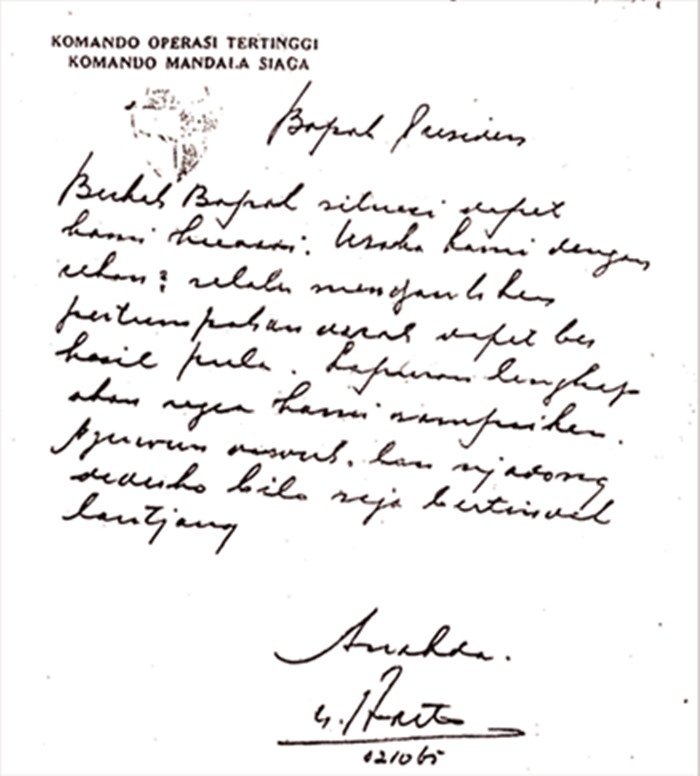 KOMANDO OPERASI TERTINGGI
KOMANDO MANDALA SIAGA
Bapak Presiden
Berkat Bapak situasi dapat
kami kuasai. Usaha kami dengan
selalu menghindarkan
pertumpahan darah dapat ber
hasil pula. Laporan lengkap
akan segera kami sampaikan.
njadong
deduko bila saja bertindak
lantjang
Anakda.
2/10 65